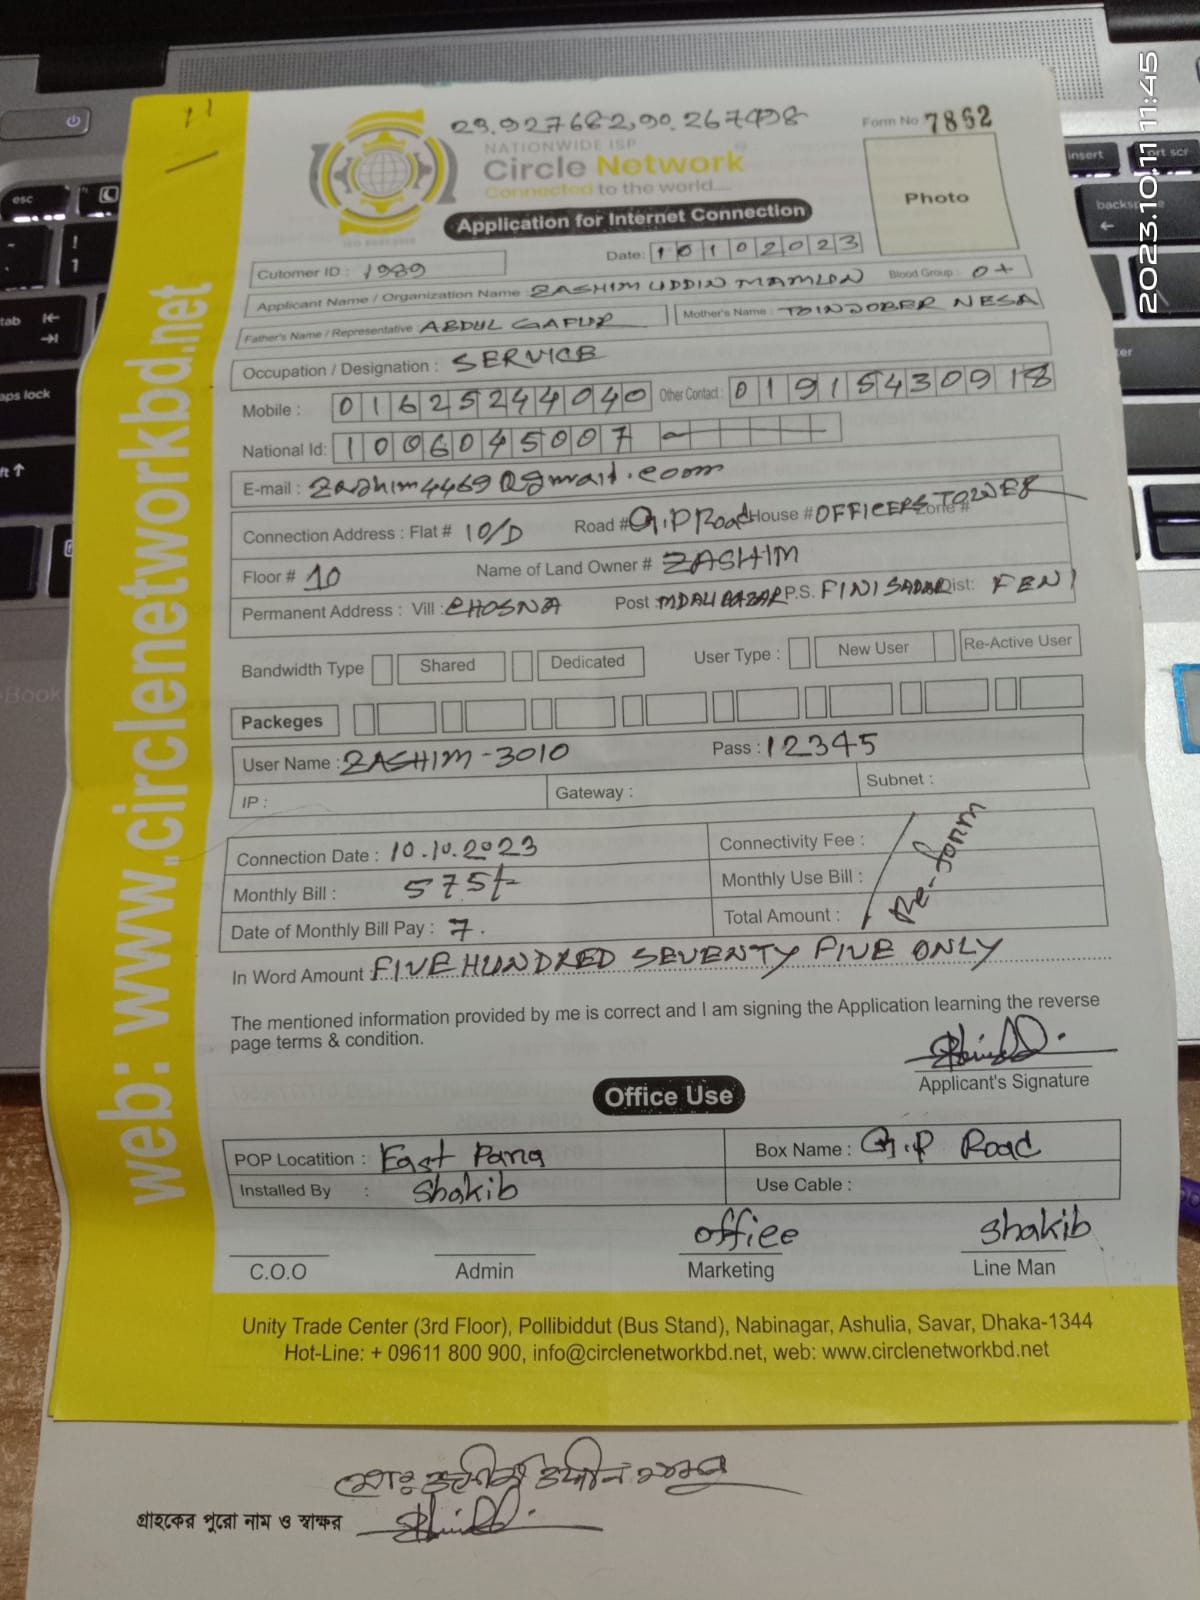 23.927682,90.267498
Form No 7862
NATIONWIDE ISP
Circle Network
Connected to the world....
Photo
Application for Internet Connection
Date: 10102023
Cutomer ID : 1989
Applicant Name / Organization Name ZASHIM UDDIN MAMLON Blood Group : O+
Father's Name / Representative ABDUL GAFUR Mother's Name : TOINJOBER NESA
Occupation / Designation : SERVICE
Mobile : 01625244040 Other Contact : 01915430918
National Id: 1006045007
E-mail : Zashim4469@gmail.com
Connection Address : Flat # 10/D Road # G.P Road House # OFFICERS TOWER Zone #
Floor # 10 Name of Land Owner # ZASHIM
Permanent Address : Vill : CHOSNA Post : MDALI BAZAR P.S. FINI SADAR Dist: FENI
Bandwidth Type Shared Dedicated User Type : New User Re-Active User
Packeges
User Name : ZASHIM-3010 Pass : 12345
IP : Gateway : Subnet :
Connection Date : 10.10.2023 Connectivity Fee :
Monthly Bill : 575/- Monthly Use Bill : Re-form
Date of Monthly Bill Pay : 7. Total Amount :
In Word Amount : FIVE HUNDRED SEVENTY FIVE ONLY
The mentioned information provided by me is correct and I am signing the Application learning the reverse
page terms & condition.
Applicant's Signature
Office Use
POP Locatition : East Para Box Name : G.P Road
Installed By : Shakib Use Cable :
office Shakib
C.O.O Admin Marketing Line Man
Unity Trade Center (3rd Floor), Pollibiddut (Bus Stand), Nabinagar, Ashulia, Savar, Dhaka-1344
Hot-Line: + 09611 800 900, info@circlenetworkbd.net, web: www.circlenetworkbd.net
গ্রাহকের পুরো নাম ও স্বাক্ষর
web: www.circlenetworkbd.net
2023.10.11 11:45
esc
tab
insert